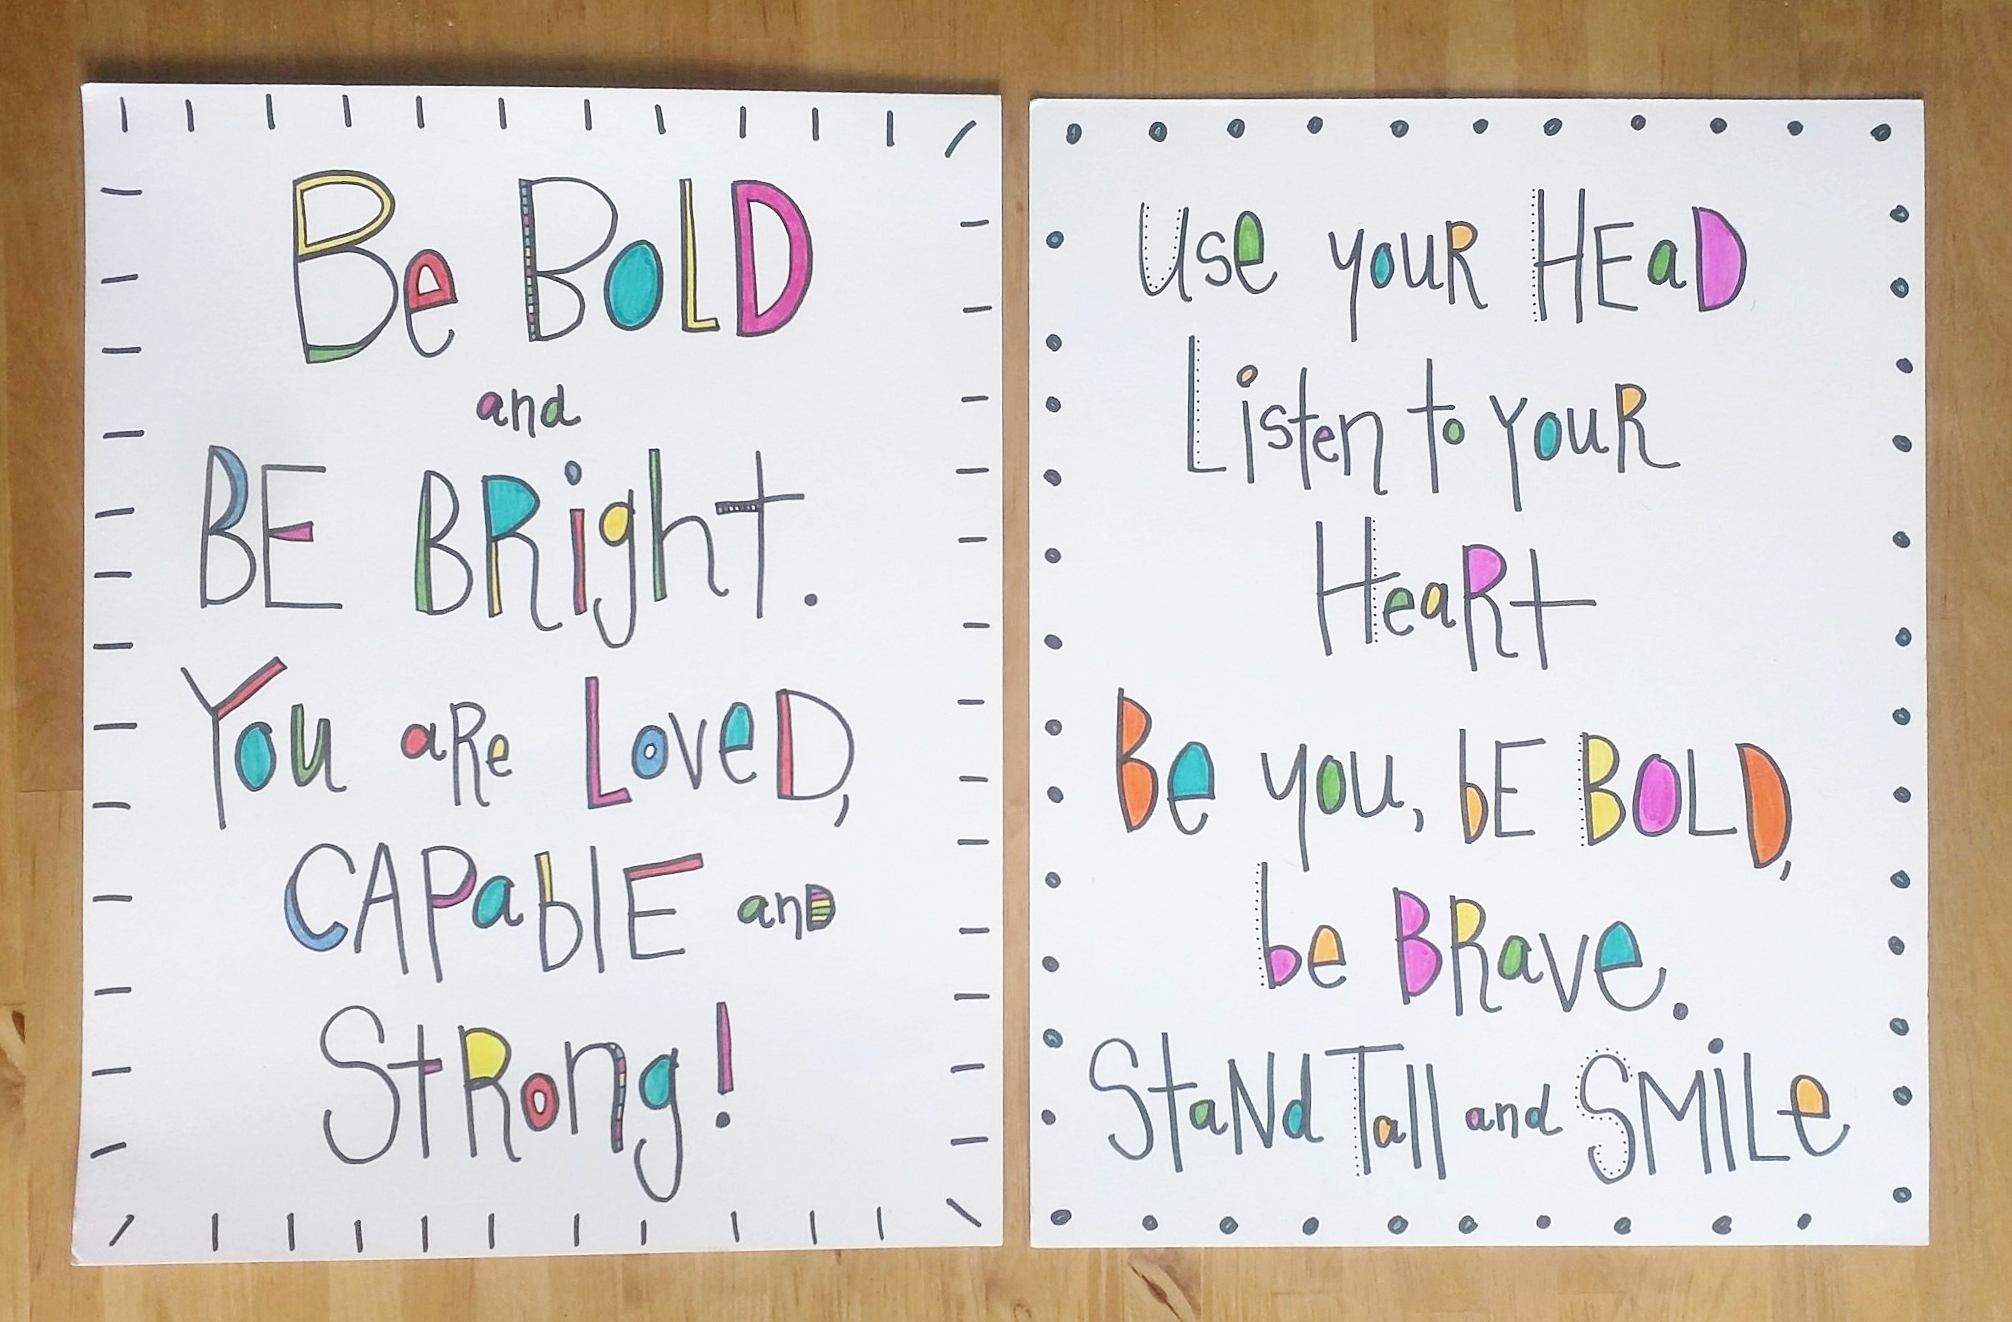 Be BOLD
and
BE BRight.
You aRe LoveD,
CAPablE anD
StRong!
Use youR HEaD
Listen to YouR
HeaRt
Be you, bE BOLD,
be BRave.
StaNd Tall and SMiLe